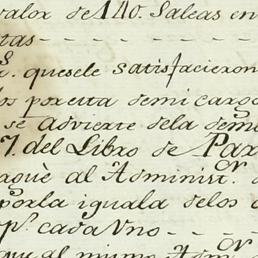 valor de 140. Saleas en
tas
s. quesele satisfacieron
los por esta demi cargo
se advierte dela
7. del Libro de Par
aquè al Administ.on
porla iguala delos
p.r cada Vno
que al mismo Adm.on